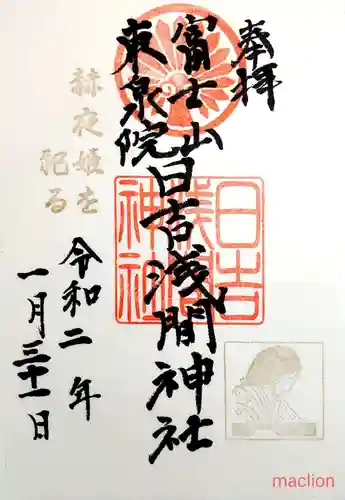 奉拝
富士山
東泉院
日吉浅間神社
日吉浅間神社
赫夜姫を
祀る
令和二年
一月三十一日
maclion